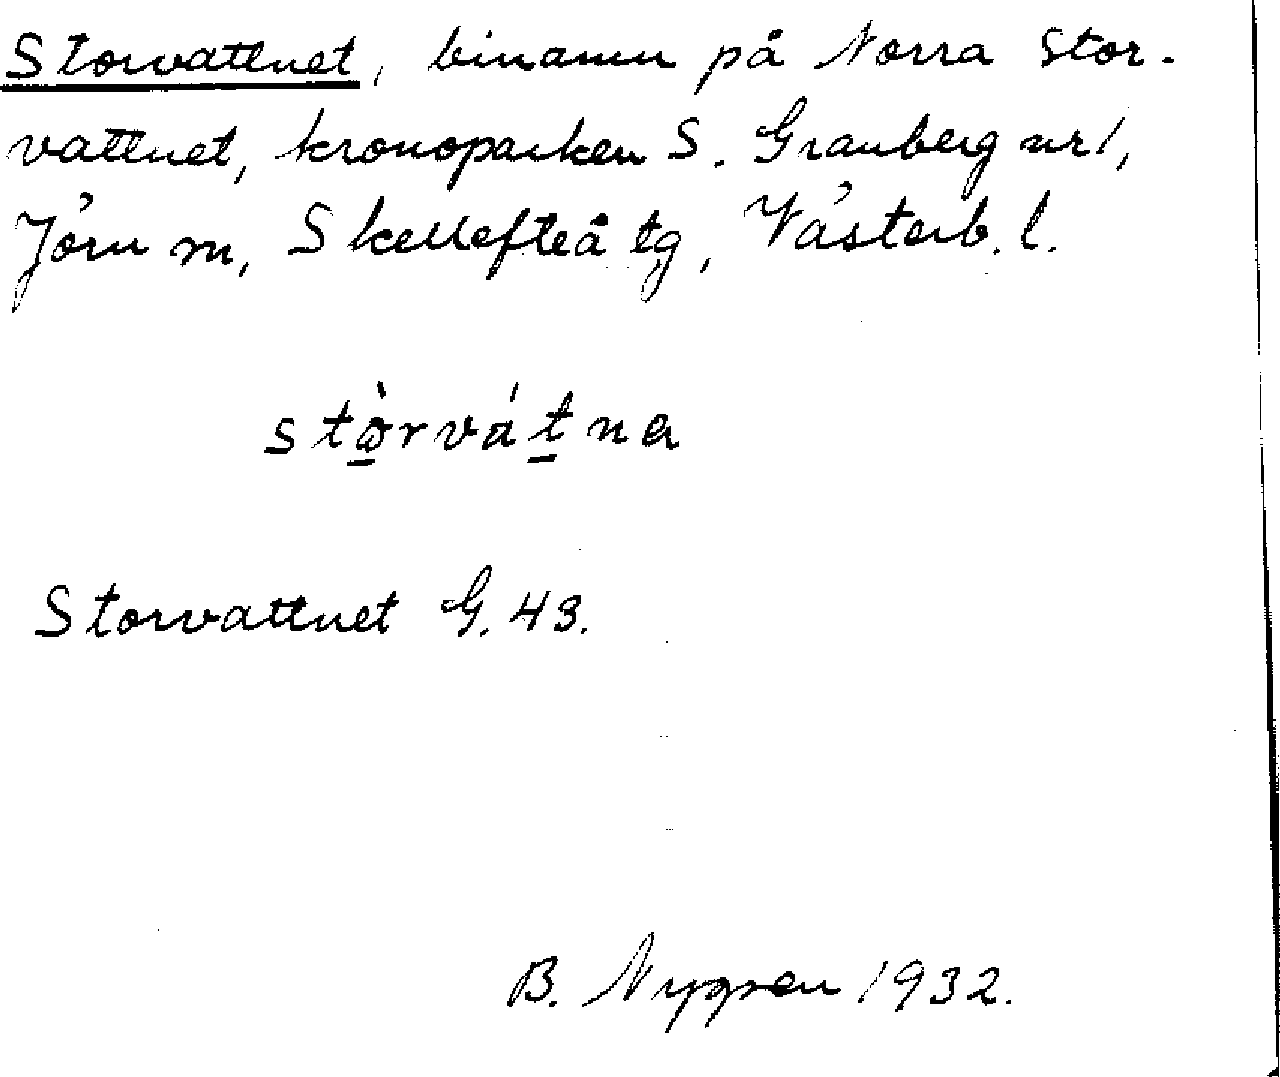 Storvattnet, binamn på Norra Stor-
vattnet, kronoparken S. Granberg nr 1,
Jörn sn, Skellefteå tg, Västerb. l.
stòrvátna
Storvattnet G. 43.
B. Nygren 1932.